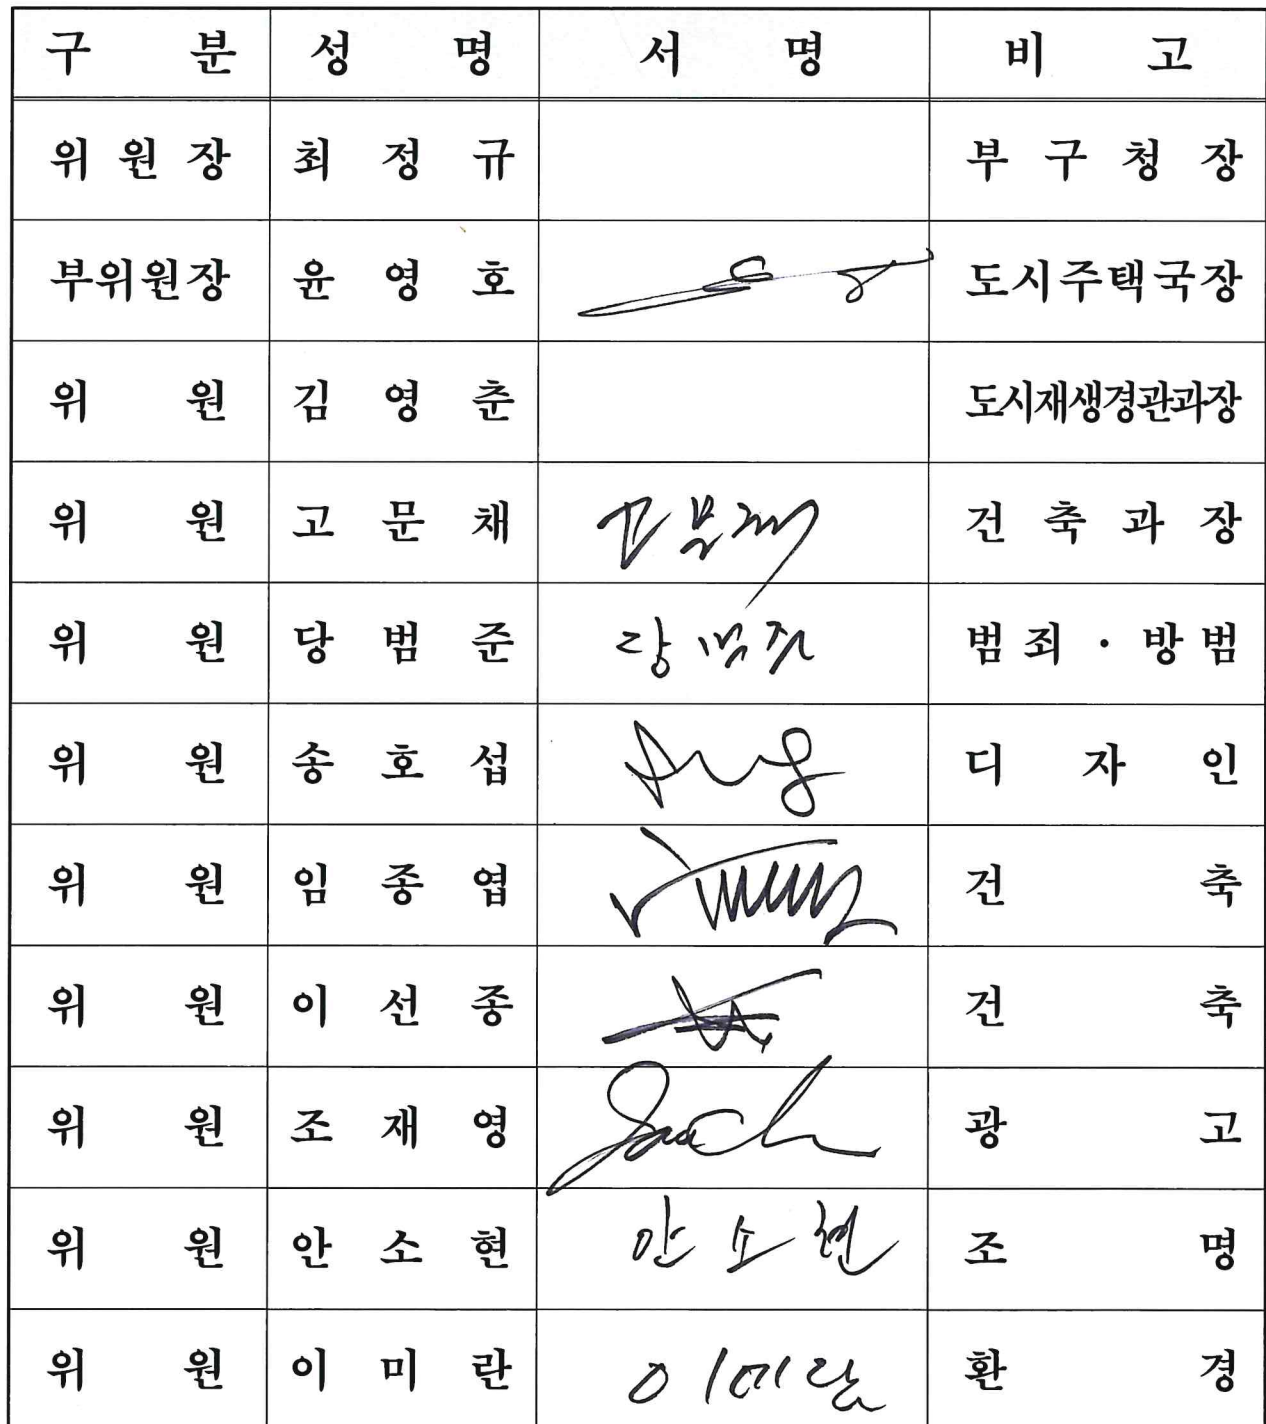 구 분 성 명 서 명 비 고
위 원 장 최 정 규 부 구 청 장
부위원장 윤 영 호 도시주택국장
위 원 김 영 춘 도시재생경관과장
위 원 고 문 채 고문채 건 축 과 장
위 원 당 범 준 당범준 범 죄 · 방 범
위 원 송 호 섭 디 자 인
위 원 임 종 엽 건 축
위 원 이 선 종 건 축
위 원 조 재 영 광 고
위 원 안 소 현 안소현 조 명
위 원 이 미 란 이미란 환 경